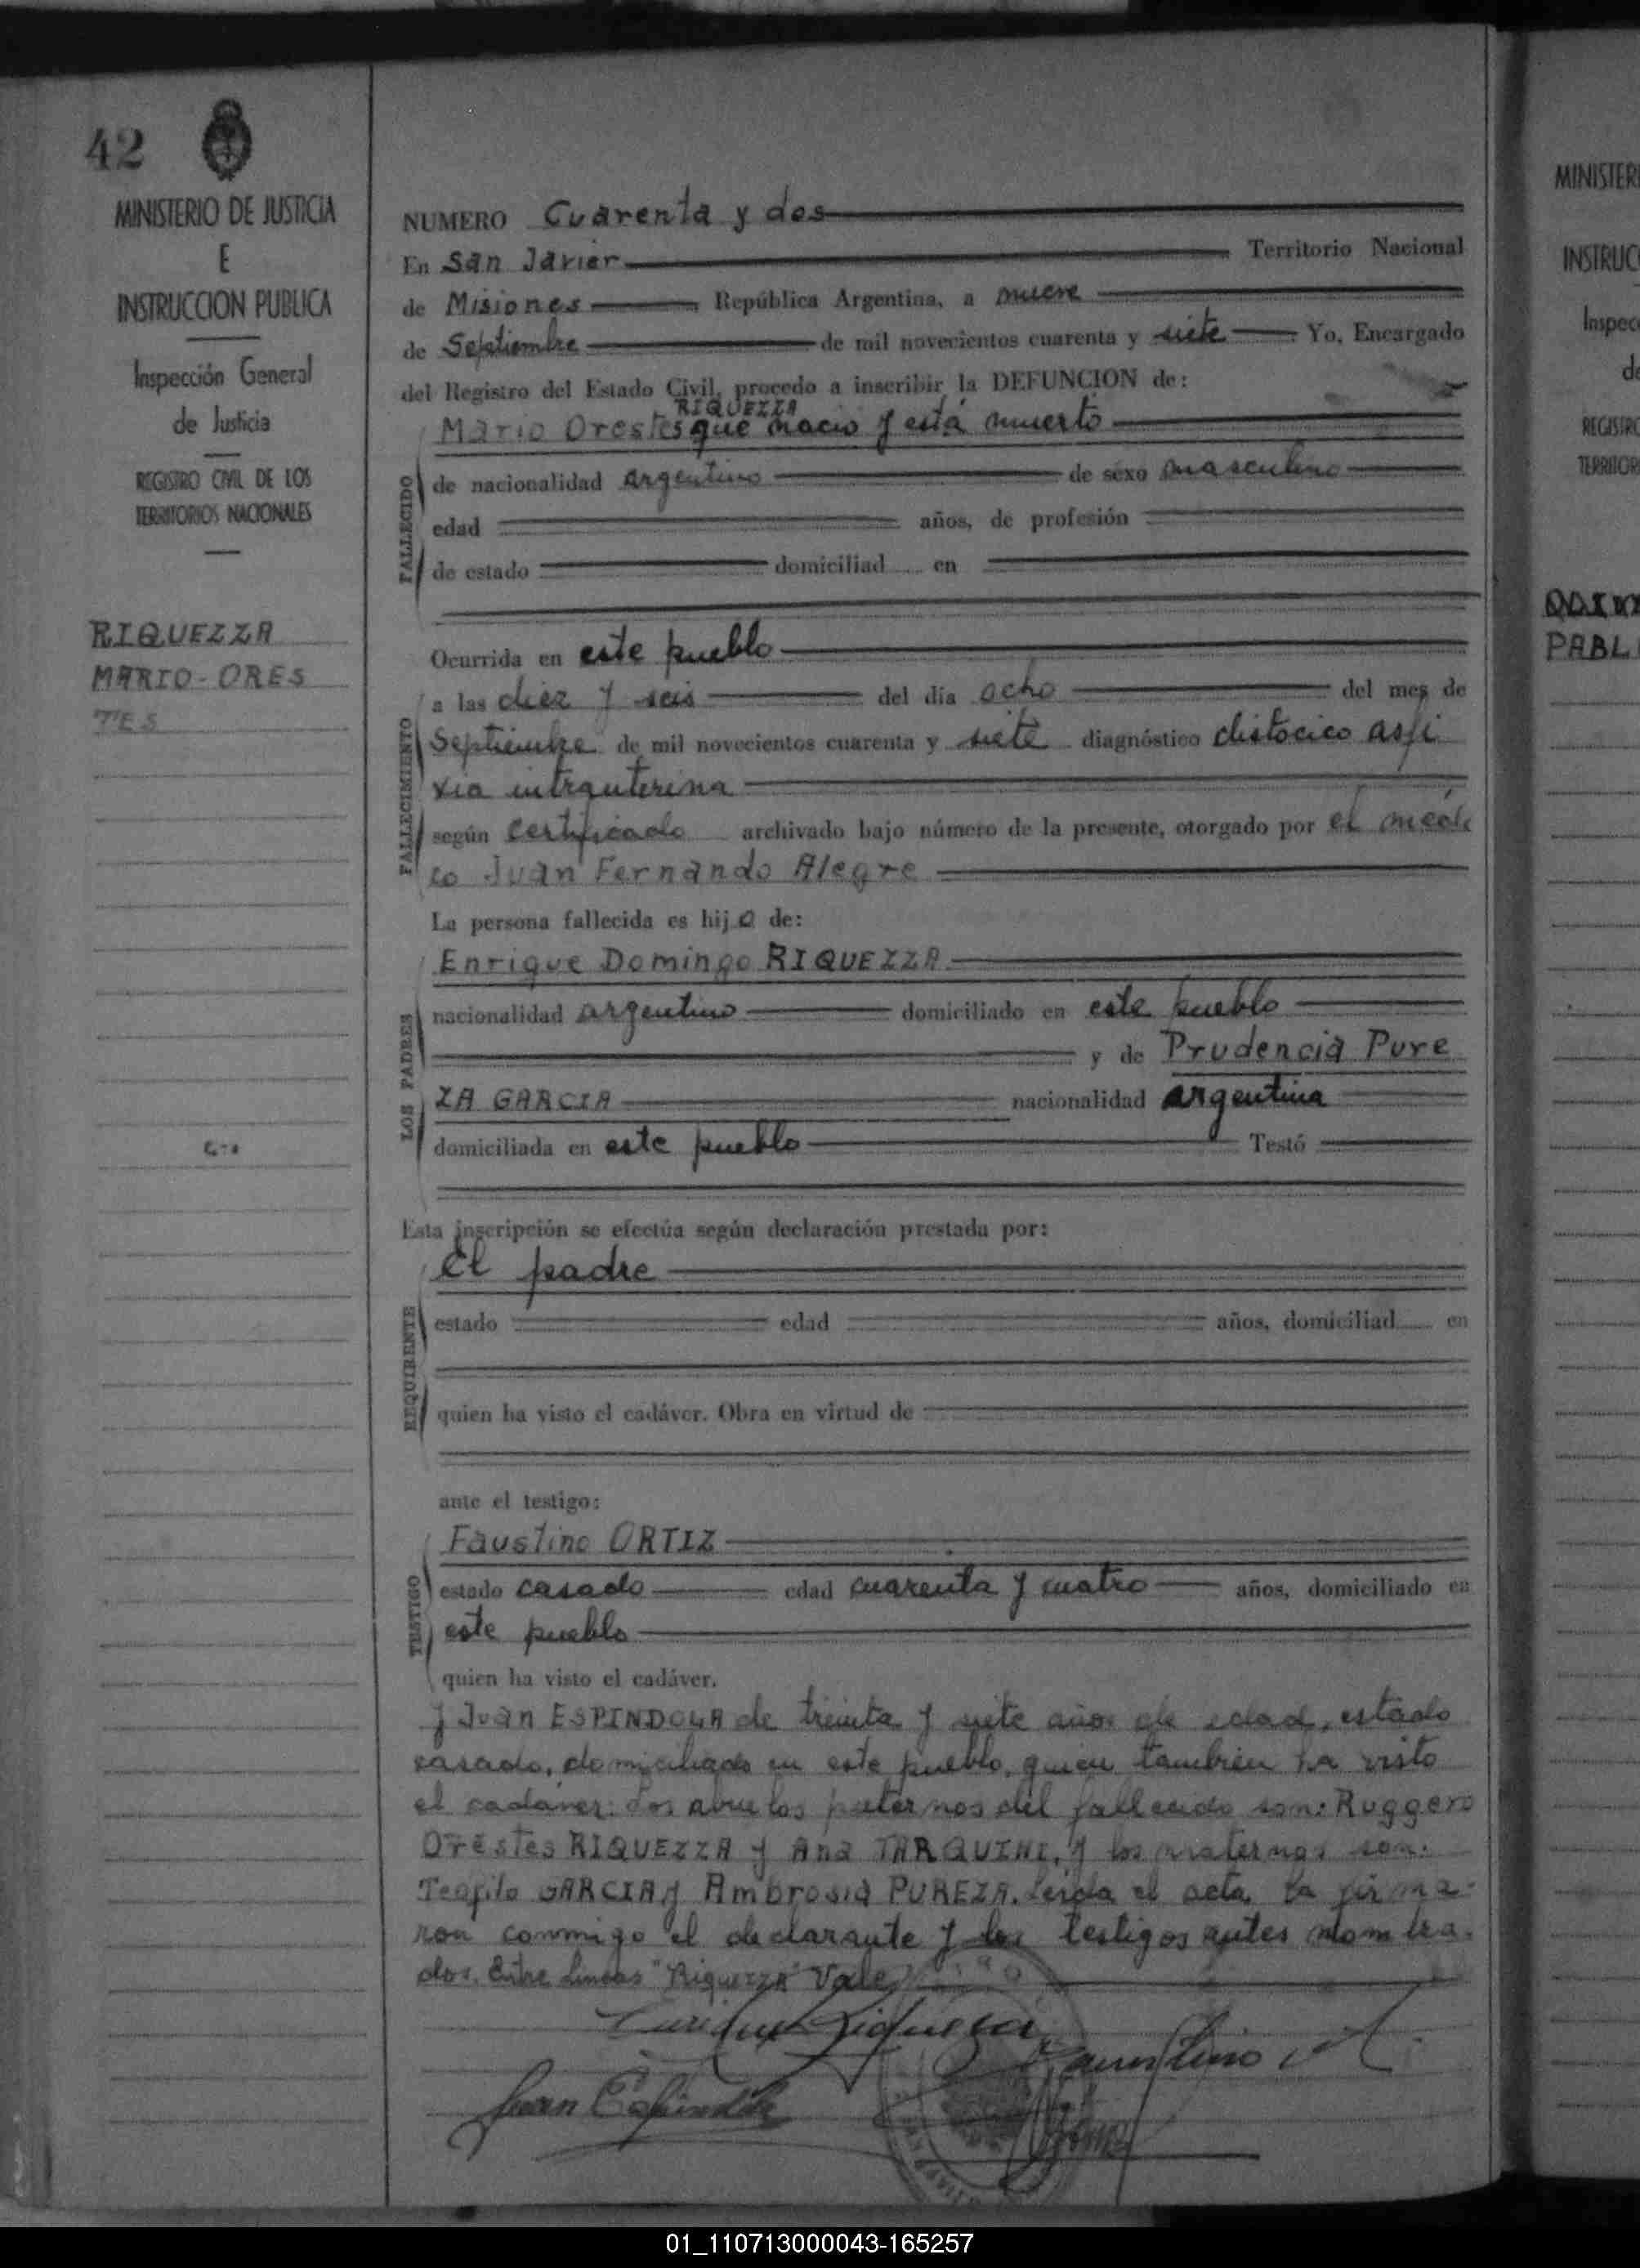 42
MINISTERIO DE JUSTICIA
E
INSTRUCCION PUBLICA
Inspección General
de Justicia
REGISTRO CIVIL DE LOS
TERRITORIOS NACIONALES
RIQUEZZA
MARIO-ORES
TES
NUMERO Cuarenta y dos
En San Javier Territorio Nacional
de Misiones República Argentina, a nueve
de Septiembre de mil novecientos cuarenta y siete Yo, Encargado
del Registro del Estado Civil, procedo a inscribir la DEFUNCION de:
RIQUEZZA
Mario Orestes que nacio y está muerto
FALLECIDO
de nacionalidad argentino de sexo masculino
edad años, de profesión
de estado domiciliad en
Ocurrida en este pueblo
FALLECIMIENTO
a las diez y seis del día ocho del mes de
Septiembre de mil novecientos cuarenta y siete diagnóstico distócico asfi
xia intrauterina
según certificado archivado bajo número de la presente, otorgado por el médi
co Juan Fernando Alegre
La persona fallecida es hijo de:
LOS PADRES
Enrique Domingo RIQUEZZA
nacionalidad argentino domiciliado en este pueblo
y de Prudencia Pure
ZA GARCIA nacionalidad argentina
domiciliada en este pueblo Testó
Esta inscripción se efectúa según declaración prestada por:
REQUIRENTE
El padre
estado edad años, domiciliad en
quien ha visto el cadáver. Obra en virtud de
ante el testigo:
TESTIGO
Faustino ORTIZ
estado casado edad cuarenta y cuatro años, domiciliado en
este pueblo
quien ha visto el cadáver.
y Juan ESPINDOLA de treinta y siete años de edad, estado
casado, domiciliado en este pueblo, quien también ha visto
el cadáver: Los abuelos paternos del fallecido son: Ruggero
Orestes RIQUEZZA y Ana TARQUINI, y los maternos son:
Teofilo GARCIA y Ambrosia PUREZA. Leida el acta la firma-
ron conmigo el declarante y los testigos antes nombra-
dos. Entre líneas "Riquezza" Vale
Enrique Riquezza
Faustino
Juan Espindola
MINISTER
INSTRUC
Inspec
de
REGISTRO
TERRITOR
PABL
01_110713000043-165257